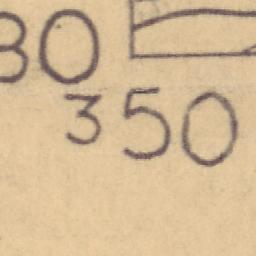 30
350